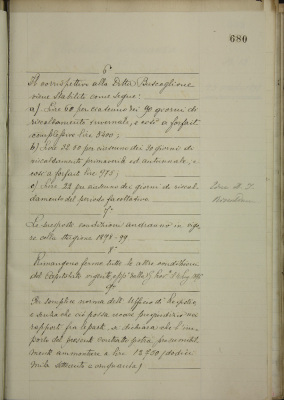 680
6°
Il corrispettivo alla Ditta Buscaglione
viene stabilito come segue:
a) Lire 60 per ciascuno dei 90 giorni di
riscaldamento invernale, e così a forfait
complessive lire 5400;
b) Lire 32.50 per ciascuno dei 30 giorni di
riscaldamento primaverile ed autunnale, e
così a forfait lire 975;
c) Lire 22 per ciascuno dei giorni di riscal-
damento del periodo facoltativo.
7°
Le suesposte condizioni andranno in vigo-
re colla stagione 1898-99.
8°
Rimangono ferme tutte le altre condizioni
del Capitolato vigente
9°
Per semplice norma dell'Ufficio di Registro
e senza che ciò possa recare pregiudizio nei
rapporti fra le parti, si dichiara che l'im-
porto del presente contratto potrà presumibil-
mente ammontare a lire 12750 (dodici
mila settecento e cinquanta)